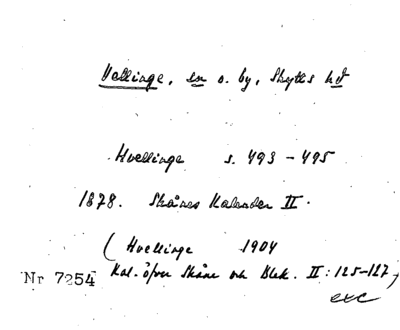 Vellinge, en o. by, Skytts hd
Hvellinge s. 493 - 495
1878. Skånes Kalender II.
( Hvellinge 1904
Nr 7254 Kal. öfver Skåne och Blek. II: 125-127)
exc